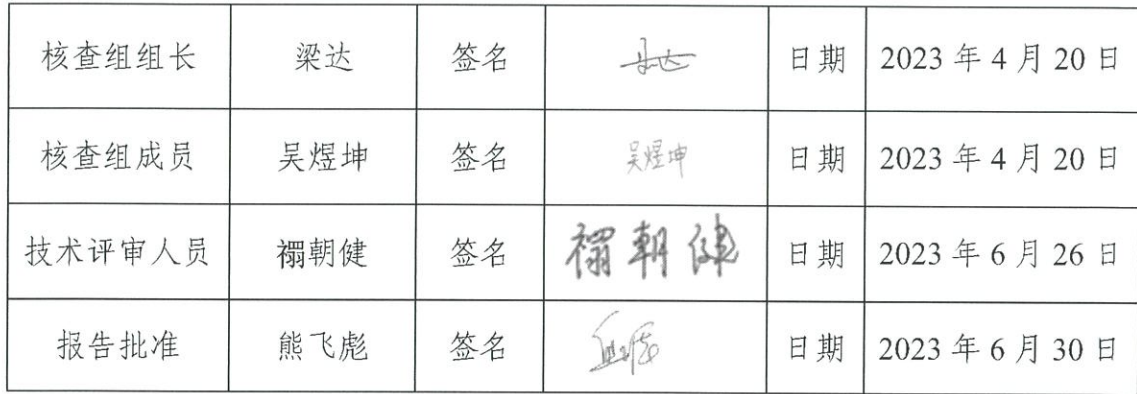 核查组组长 梁达 签名 日期 2023 年 4 月 20 日
核查组成员 吴煜坤 签名 吴煜坤 日期 2023 年 4 月 20 日
技术评审人员 禤朝健 签名 禤朝健 日期 2023 年 6 月 26 日
报告批准 熊飞彪 签名 日期 2023 年 6 月 30 日